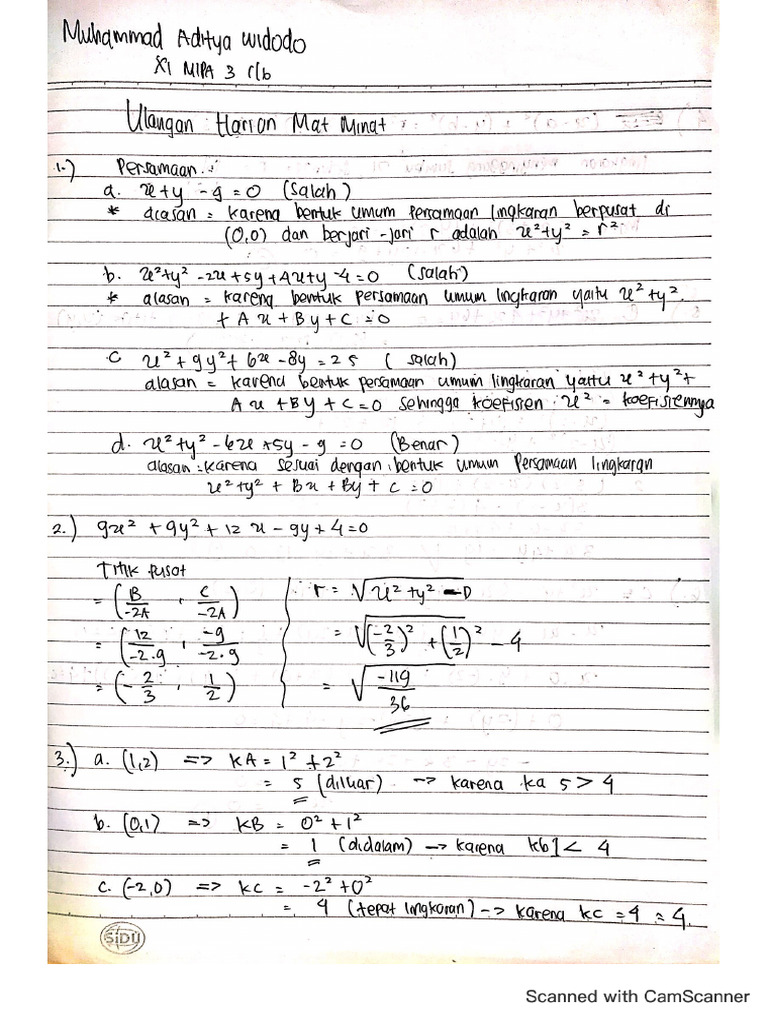 Muhammad Aditya Widodo
XI MIPA 3 r/b
Ulangan Harian Mat Minat
1.) Persamaan :
a. x+y - 9 = 0 (Salah)
* alasan = karena bentuk umum persamaan lingkaran berpusat di
(0,0) dan berjari-jari r adalah x²+y² = r²
b. x²+y² -2x+5y+4x+y-4=0 (salah)
* alasan = karena bentuk persamaan umum lingkaran yaitu x²+y²
+ Ax + By + C = 0
c x² + 9y² + 6x - 8y = 25 (salah)
alasan = karena bentuk persamaan umum lingkaran yaitu x²+y²+
Ax +By + C = 0 sehingga koefisien x² = koefisiennya
d. x²+y² - 6x +5y - 9 = 0 (Benar)
alasan = karena sesuai dengan bentuk umum Persamaan lingkaran
x²+y² + Bx + By + C = 0
2.) 9x² + 9y² + 12 x - 9y + 4 = 0
Titik pusat
= (B/-2A , C/-2A) r = √x²+y² - D
= (12/-2.9 , -9/-2.9) = √(-2/3)² + (1/2)² - 4
= (-2/3 , 1/2) = √-119/36
3.) a. (1,2) => KA = 1² + 2²
= 5 (diluar) -> karena ka 5 > 4
b. (0,1) => KB = 0² + 1²
= 1 (didalam) -> karena kb 1 < 4
c. (-2,0) => KC = -2² + 0²
= 4 (tepat lingkaran) -> karena kc = 4 = 4
SIDU
Scanned with CamScanner